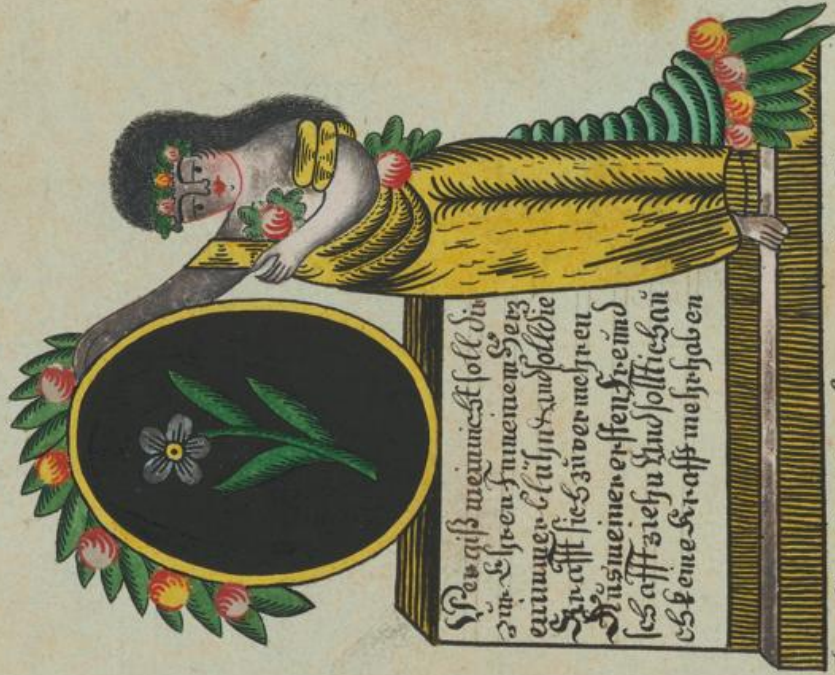 Vergiß mein nicht soll dir
zur Ehren In meinem Herz
en immer blühn und soll die
Krafft sich zu vermehren
Aus meiner ersten freund
schafft ziehn Und sollt ich au
ch keine Krafft mehr haben